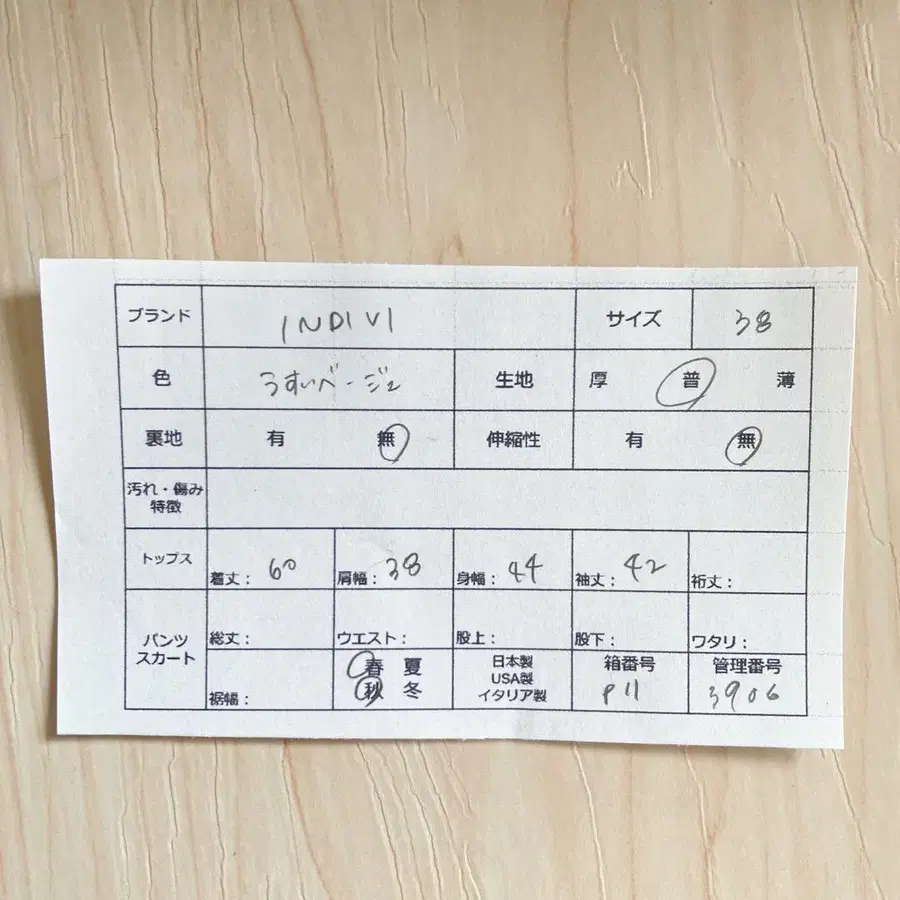 ブランド INDIVI サイズ 38
色 うすいベージュ 生地 厚 普 薄
裏地 有 無 伸縮性 有 無
汚れ・傷み
特徴
トップス 着丈: 60 肩幅: 38 身幅: 44 袖丈: 42 裄丈:
パンツ
スカート
総丈: ウエスト: 股上: 股下: ワタリ:
裾幅:
春 夏
秋 冬
日本製
USA製
イタリア製
箱番号
P11
管理番号
3906